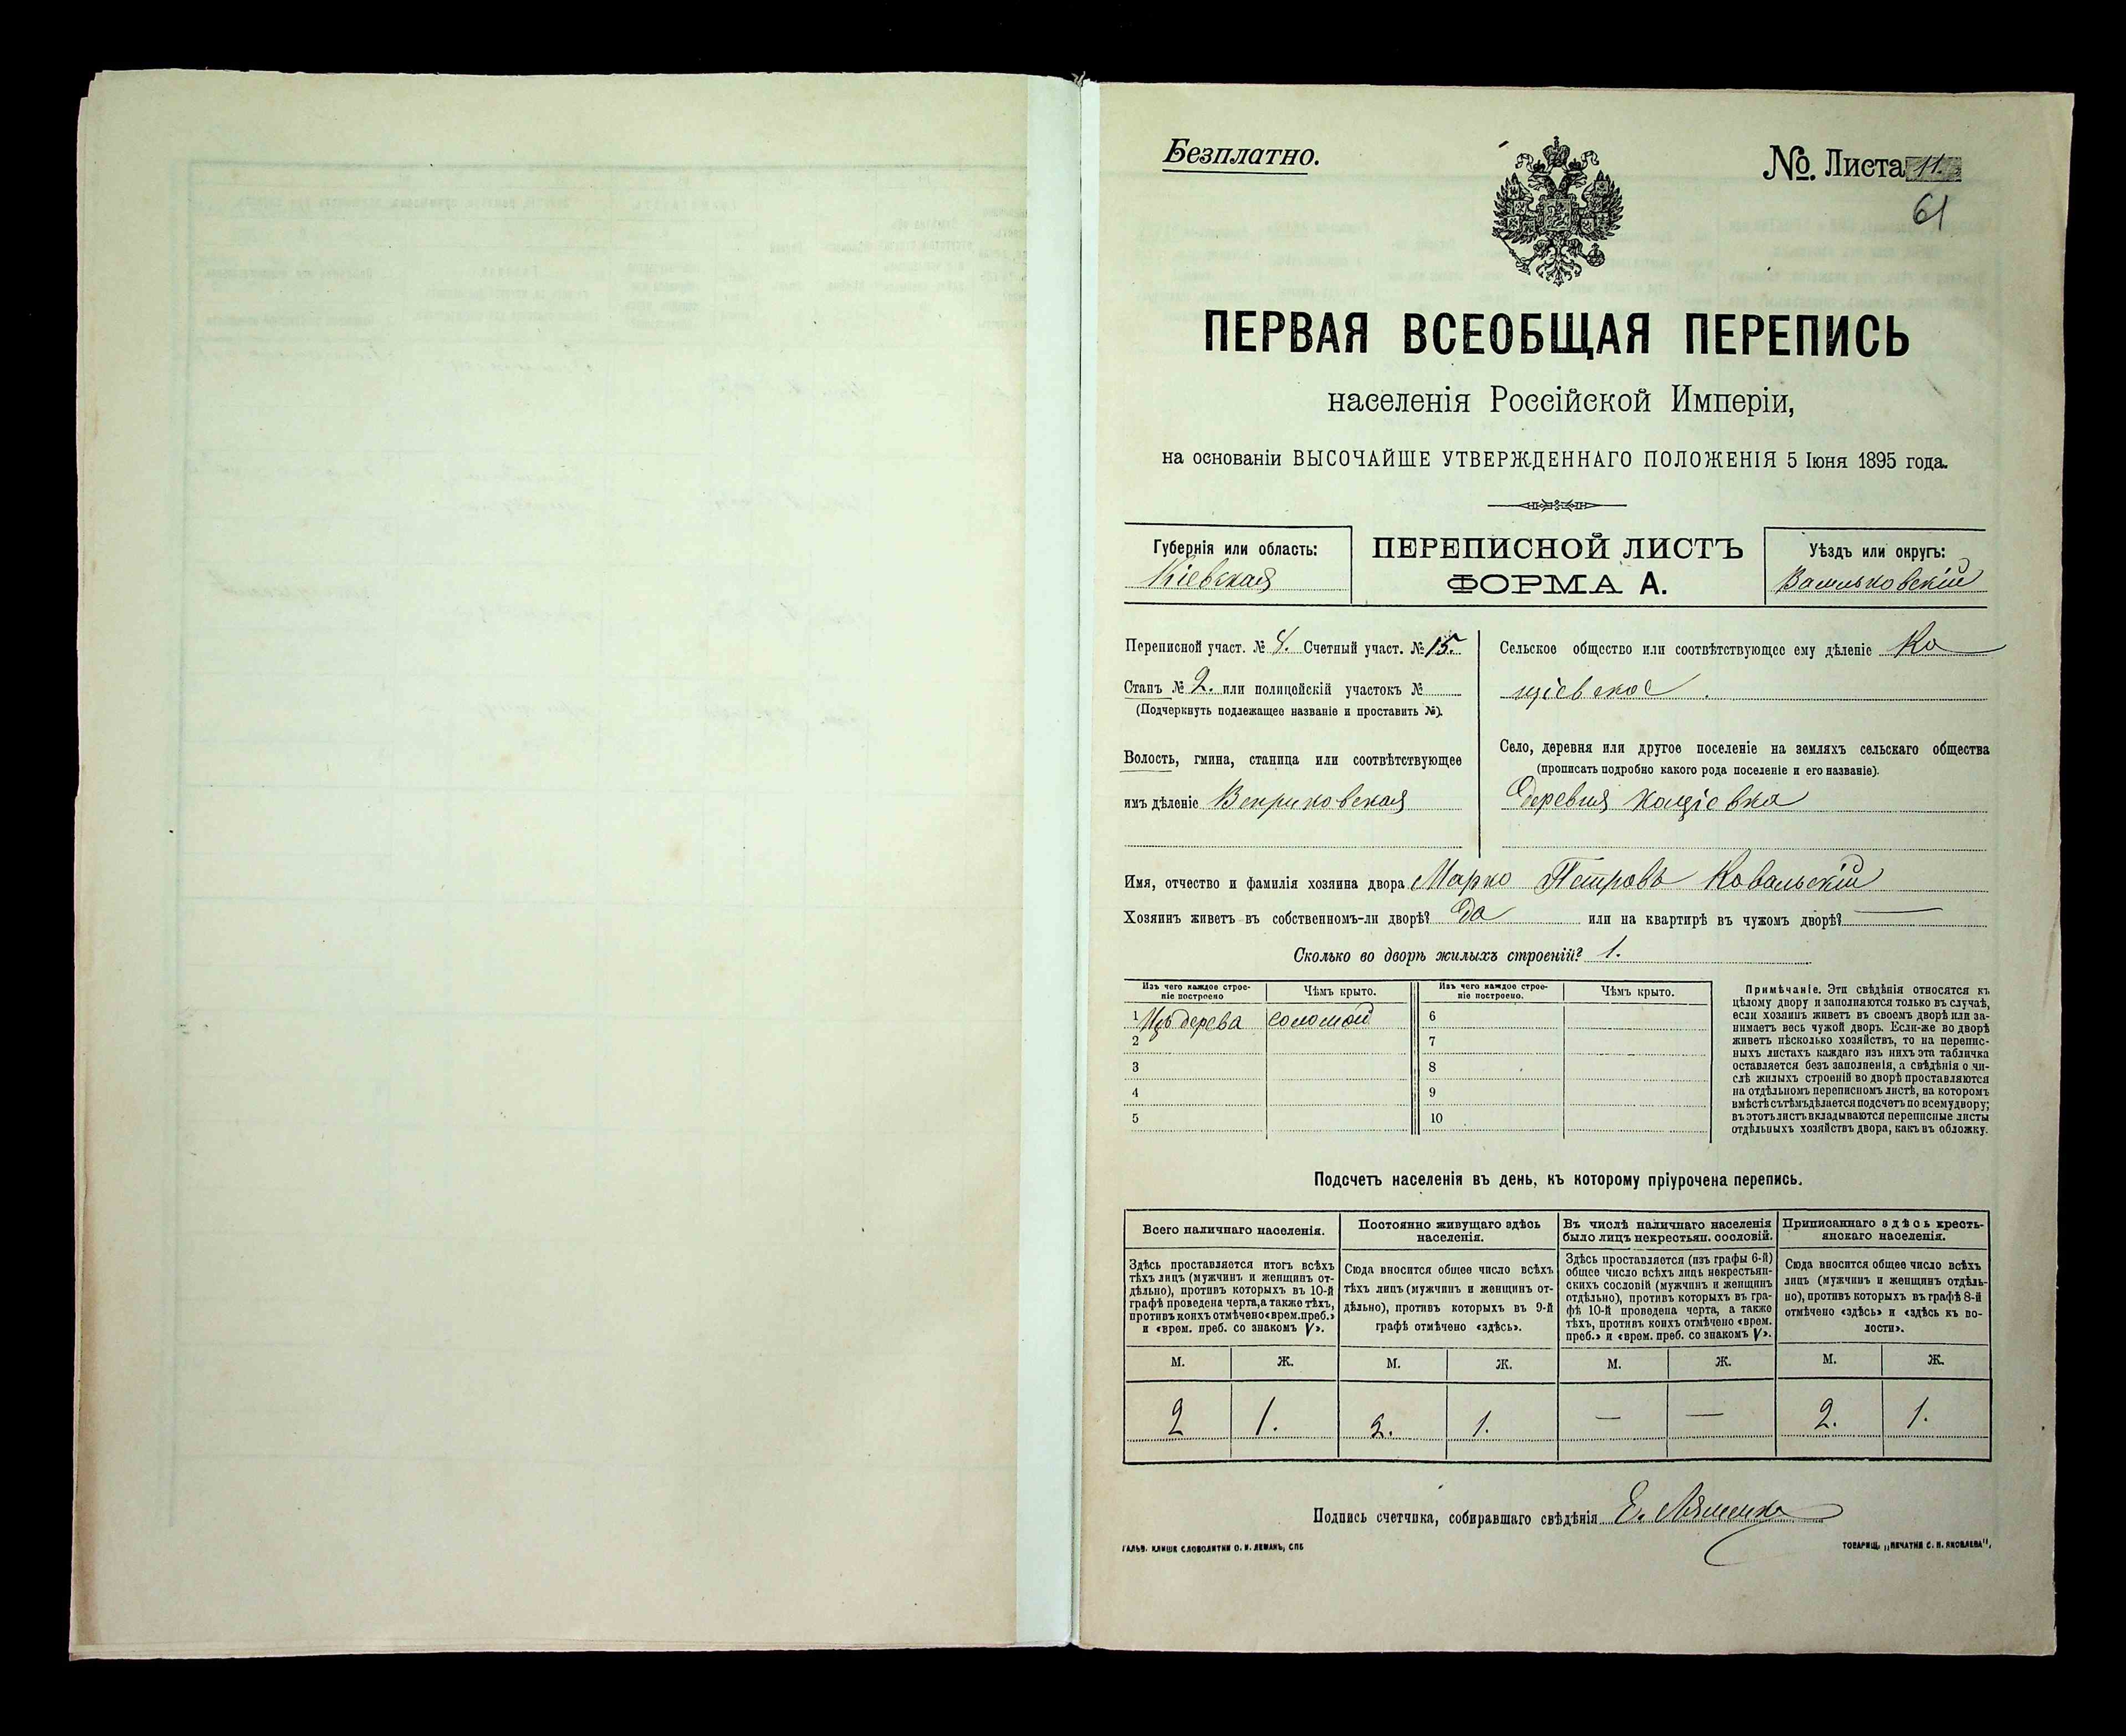 Безплатно.
№. Листа 11.
61
ПЕРВАЯ ВСЕОБЩАЯ ПЕРЕПИСЬ
населенія Россійской Имперіи,
на основаніи ВЫСОЧАЙШЕ УТВЕРЖДЕННАГО ПОЛОЖЕНІЯ 5 Іюня 1895 года.
Губернія или область:
Кіевская
ПЕРЕПИСНОЙ ЛИСТЪ
ФОРМА А.
Уѣздъ или округъ:
Васильковскій
Переписной участ. № 8. Счетный участ. № 15.
Станъ № 2. или полицейскій участокъ №
(Подчеркнуть подлежащее названіе и проставить №).
Волость, гмина, станица или соотвѣтствующее
имъ дѣленіе Веприковская
Сельское общество или соотвѣтствующее ему дѣленіе Ко
щіевское.
Село, деревня или другое поселеніе на земляхъ сельскаго общества
(прописать подробно какого рода поселеніе и его названіе).
Деревня Кощіевка
Имя, отчество и фамилія хозяина двора Марко Петровъ Ковальскій
Хозяинъ живетъ въ собственномъ-ли дворѣ? Да или на квартирѣ въ чужомъ дворѣ? —
Сколько во дворѣ жилыхъ строеній? 1.
Изъ чего каждое строе-
ніе построено
Чѣмъ крыто.
Изъ чего каждое строе-
ніе построено.
Чѣмъ крыто.
1 Изъ дерева соломой 6
2 7
3 8
4 9
5 10
Примѣчаніе. Эти свѣдѣнія относятся къ
цѣлому двору и заполняются только въ случаѣ,
если хозяинъ живетъ въ своемъ дворѣ или за-
нимаетъ весь чужой дворъ. Если-же во дворѣ
живетъ нѣсколько хозяйствъ, то на перепис-
ныхъ листахъ каждаго изъ нихъ эта табличка
оставляется безъ заполненія, а свѣдѣнія о чи-
слѣ жилыхъ строеній во дворѣ проставляются
на отдѣльномъ переписномъ листѣ, на которомъ
вмѣстѣ съ тѣмъ дѣлается подсчетъ по всему двору;
въ этотъ листъ вкладываются переписные листы
отдѣльныхъ хозяйствъ двора, какъ въ обложку.
Подсчетъ населенія въ день, къ которому пріурочена перепись.
Всего наличнаго населенія.
Здѣсь проставляется итогъ всѣхъ
тѣхъ лицъ (мужчинъ и женщинъ от-
дѣльно), противъ которыхъ въ 10-й
графѣ проведена черта, а также тѣхъ,
противъ коихъ отмѣчено «врем. преб.»
и «врем. преб. со знакомъ V».
Постоянно живущаго здѣсь
населенія.
Сюда вносится общее число всѣхъ
тѣхъ лицъ (мужчинъ и женщинъ от-
дѣльно), противъ которыхъ въ 9-й
графѣ отмѣчено «здѣсь».
Въ числѣ наличнаго населенія
было лицъ некрестьян. сословій.
Здѣсь проставляется (изъ графы 6-й)
общее число всѣхъ лицъ некрестьян-
скихъ сословій (мужчинъ и женщинъ
отдѣльно), противъ которыхъ въ гра-
фѣ 10-й проведена черта, а также
тѣхъ, противъ коихъ отмѣчено «врем.
преб.» и «врем. преб. со знакомъ V».
Приписаннаго здѣсь кресть-
янскаго населенія.
Сюда вносится общее число всѣхъ
лицъ (мужчинъ и женщинъ отдѣль-
но), противъ которыхъ въ графѣ 8-й
отмѣчено «здѣсь» и «здѣсь къ во-
лости».
М. Ж. М. Ж. М. Ж. М. Ж.
2 1. 2. 1. — — 2. 1.
Подпись счетчика, собиравшаго свѣдѣнія Е. Ляшенко
ГАЛЬВ. КЛИШЕ СЛОВОЛИТНИ О. И. ЛЕМАНЪ, СПБ
ТОВАРИЩ. „ПЕЧАТНЯ С. П. ЯКОВЛЕВА",